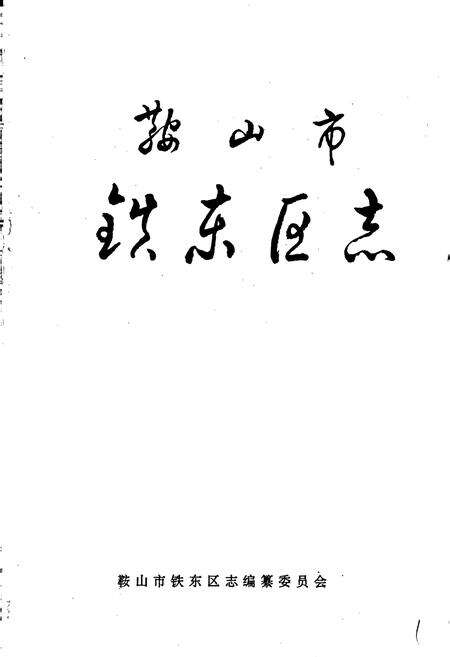 鞍山市
铁东区志
鞍山市铁东区志编纂委员会